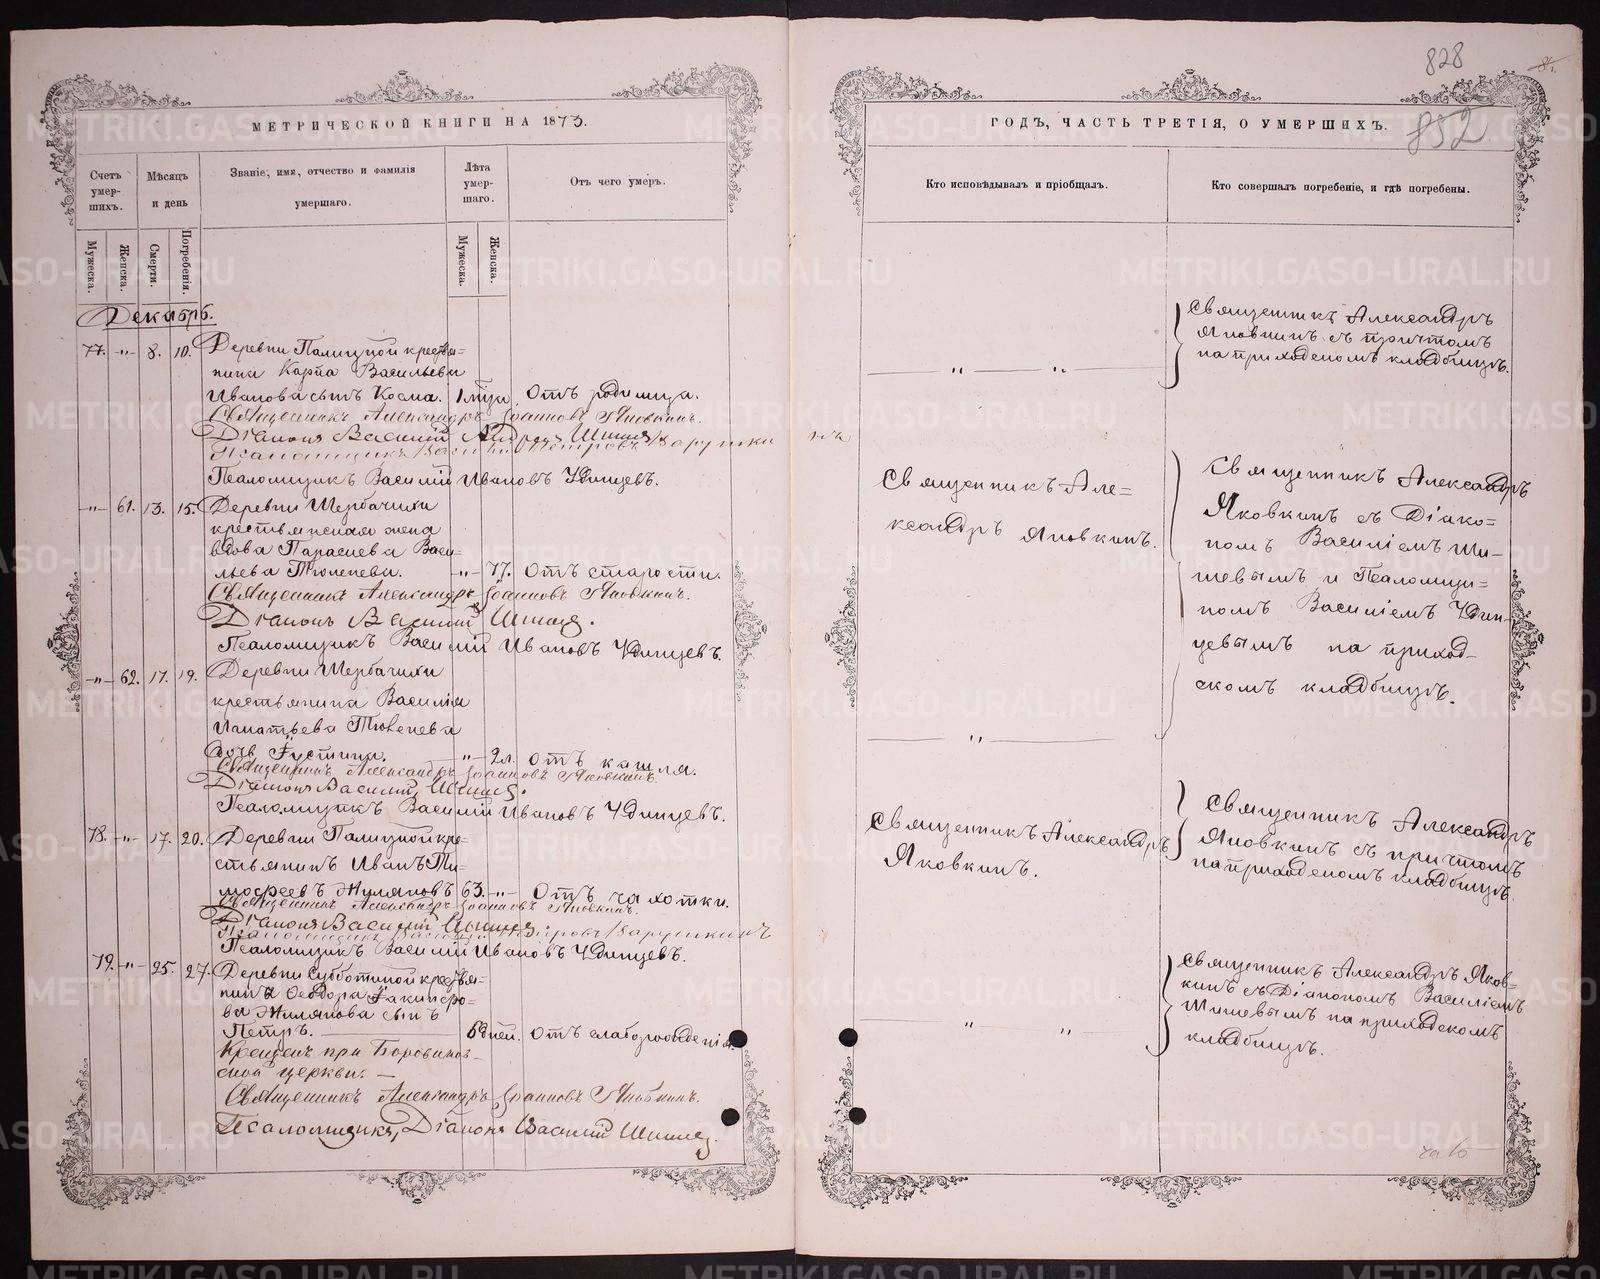 828
852
МЕТРИЧЕСКОЙ КНИГИ НА 1873.
Счетъ умер-шихъ.
Мѣсяцъ и день
Званіе, имя, отчество и фамилія умершаго.
Лѣта умер-шаго.
Отъ чего умеръ.
Мужеска.
Женска.
Смерти.
Погребенія.
Мужеска.
Женска.
Декабрь.
77. -"- 8. 10. Деревни Палицной крестья=
нина Карпа Васильева
Иванова сынъ Косма. 1 отъ родимца.
Священникъ Александръ Іоанновъ Яковкинъ.
Діаконъ Василій
Псаломщикъ Василій Ивановъ Удинцевъ.
-"- 61. 13. 15. Деревни Щербачихи
крестьянская жена
вдова Параскева Васи=
льева Тюленева. -"- 77. отъ старости.
Священникъ Александръ Іоанновъ Яковкинъ.
Діаконъ Василій Шишевъ.
Псаломщикъ Василій Ивановъ Удинцевъ.
-"- 62. 17. 19. Деревни Щербачихи
крестьянина Василія
Игнатьева Тюленева
дочь Іустина. -"- 2л. отъ кашля.
Священникъ Александръ Іоанновъ Яковкинъ.
Діаконъ Василій Шишевъ.
Псаломщикъ Василій Ивановъ Удинцевъ.
78. -"- 17. 20. Деревни Палицной кре=
стьянинъ Иванъ Ти=
мофеевъ Жиляковъ 63. -"- отъ чахотки.
Священникъ Александръ Іоанновъ Яковкинъ.
Діаконъ Василій Шишевъ
Псаломщикъ Василій Ивановъ Удинцевъ.
79. -"- 25. 27. Деревни Субботиной крестья=
нина Ѳеодора
Жилякова сынъ
Петръ. 6 дней. отъ слаборожденія.
Крещенъ при Боровиков-
ской церкви. —
Священникъ Александръ Іоанновъ Яковкинъ.
Псаломщикъ, Діаконъ Василій Шишевъ.
ГОДЪ, ЧАСТЬ ТРЕТІЯ, О УМЕРШИХЪ.
Кто исповѣдывалъ и пріобщалъ.
Кто совершалъ погребеніе, и гдѣ погребены.
Священникъ Александръ
Яковкинъ съ причтомъ
на приходскомъ кладбищѣ.
Священникъ Але=
ксандръ Яковкинъ.
Священникъ Александръ
Яковкинъ съ Діако=
номъ Василіемъ Ши-
шевымъ и Псаломщи=
комъ Василіемъ Удин-
цевымъ на приход-
скомъ кладбищѣ.
Священникъ Александръ
Яковкинъ.
Священникъ Александръ
Яковкинъ съ причтомъ
на приходскомъ кладбищѣ.
Священникъ Александръ Яков=
кинъ съ Діакономъ Василіемъ
Шишевымъ на приходскомъ
кладбищѣ.
METRIKI.GASO-URAL.RU